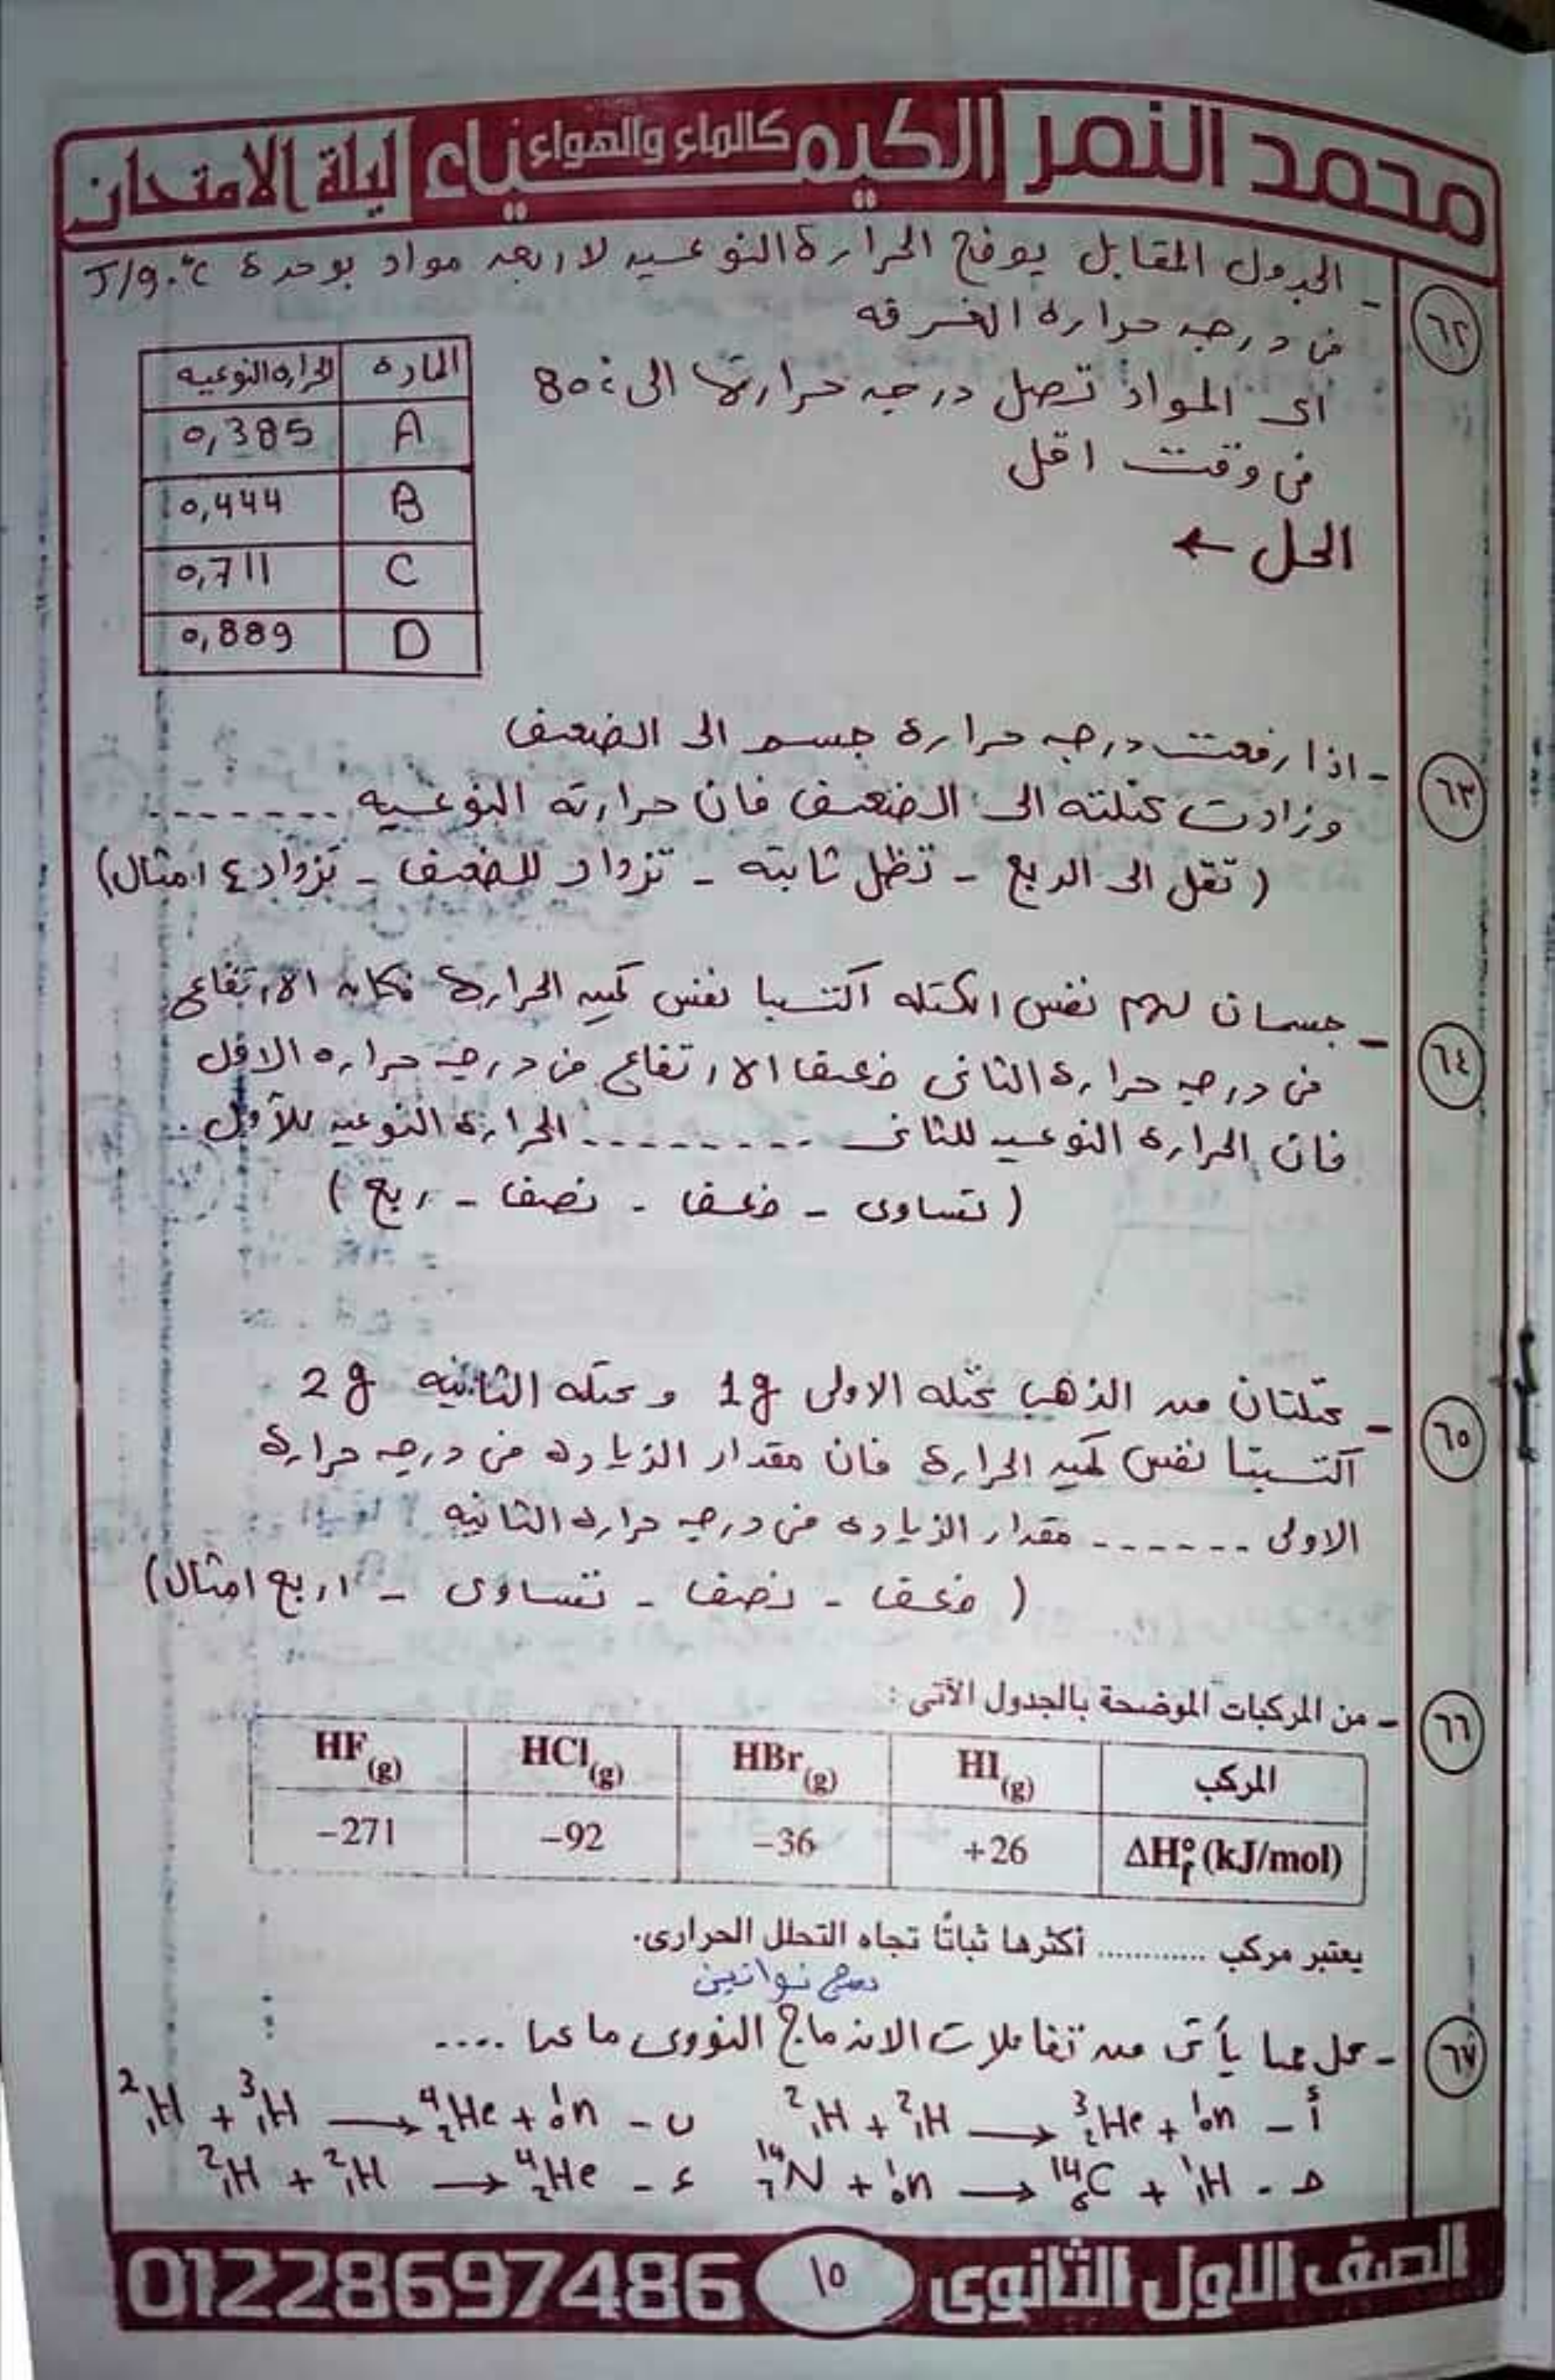 محمد النمر الكيمياء كالماء والهواء ليلة الامتحان
٦٢ - الجدول المقابل يوضح الحرارة النوعيه لاربعه مواد بوحدة J/g.°c
فى درجه حرارة الغرفه
اى المواد تصل درجه حرارتها الى 80°
فى وقت اقل
الحل ←
المادة الحراره النوعيه
A 0,385
B 0,444
C 0,711
D 0,889
٦٣ - اذا رفعت درجه حرارة جسم الى الضعف
وزادت كتلته الى الضعف فان حرارته النوعيه .......
( تقل الى الربع - تظل ثابته - تزداد للضعف - تزداد ٤ امثال)
٦٤ - جسمان لهم نفس الكتله اكتسبا نفس كميه الحرارة فكان الارتفاع
فى درجه حرارة الثانى ضعف الارتفاع فى درجه حراره الاول
فان الحرارة النوعيه للثانى ......... الحرارة النوعيه للأول .
( تساوى - ضعف - نصف - ربع )
٦٥ - كتلتان من الذهب كتله الاولى 1g و كتله الثانيه 2g
اكتسبتا نفس كميه الحرارة فان مقدار الزياده فى درجه حرارة
الاولى ------ مقدار الزياده فى درجه حراره الثانيه
( ضعف - نصف - تساوى - اربع امثال)
٦٦ - من المركبات الموضحة بالجدول الآتى :
المركب HI(g) HBr(g) HCl(g) HF(g)
ΔH°f (kJ/mol) +26 −36 −92 −271
يعتبر مركب ............ أكثرها ثباتًا تجاه التحلل الحرارى.
دمج نواتين
٦٧ - كل مما يأتى من تفاعلات الاندماج النووى ما عدا ....
أ - ²₁H + ²₁H → ³₂He + ¹₀n ب - ²₁H + ³₁H → ⁴₂He + ¹₀n
حـ - ¹⁴₇N + ¹₀n → ¹⁴₆C + ¹₁H ء - ²₁H + ²₁H → ⁴₂He
الصف الاول الثانوى ١٥ 01228697486